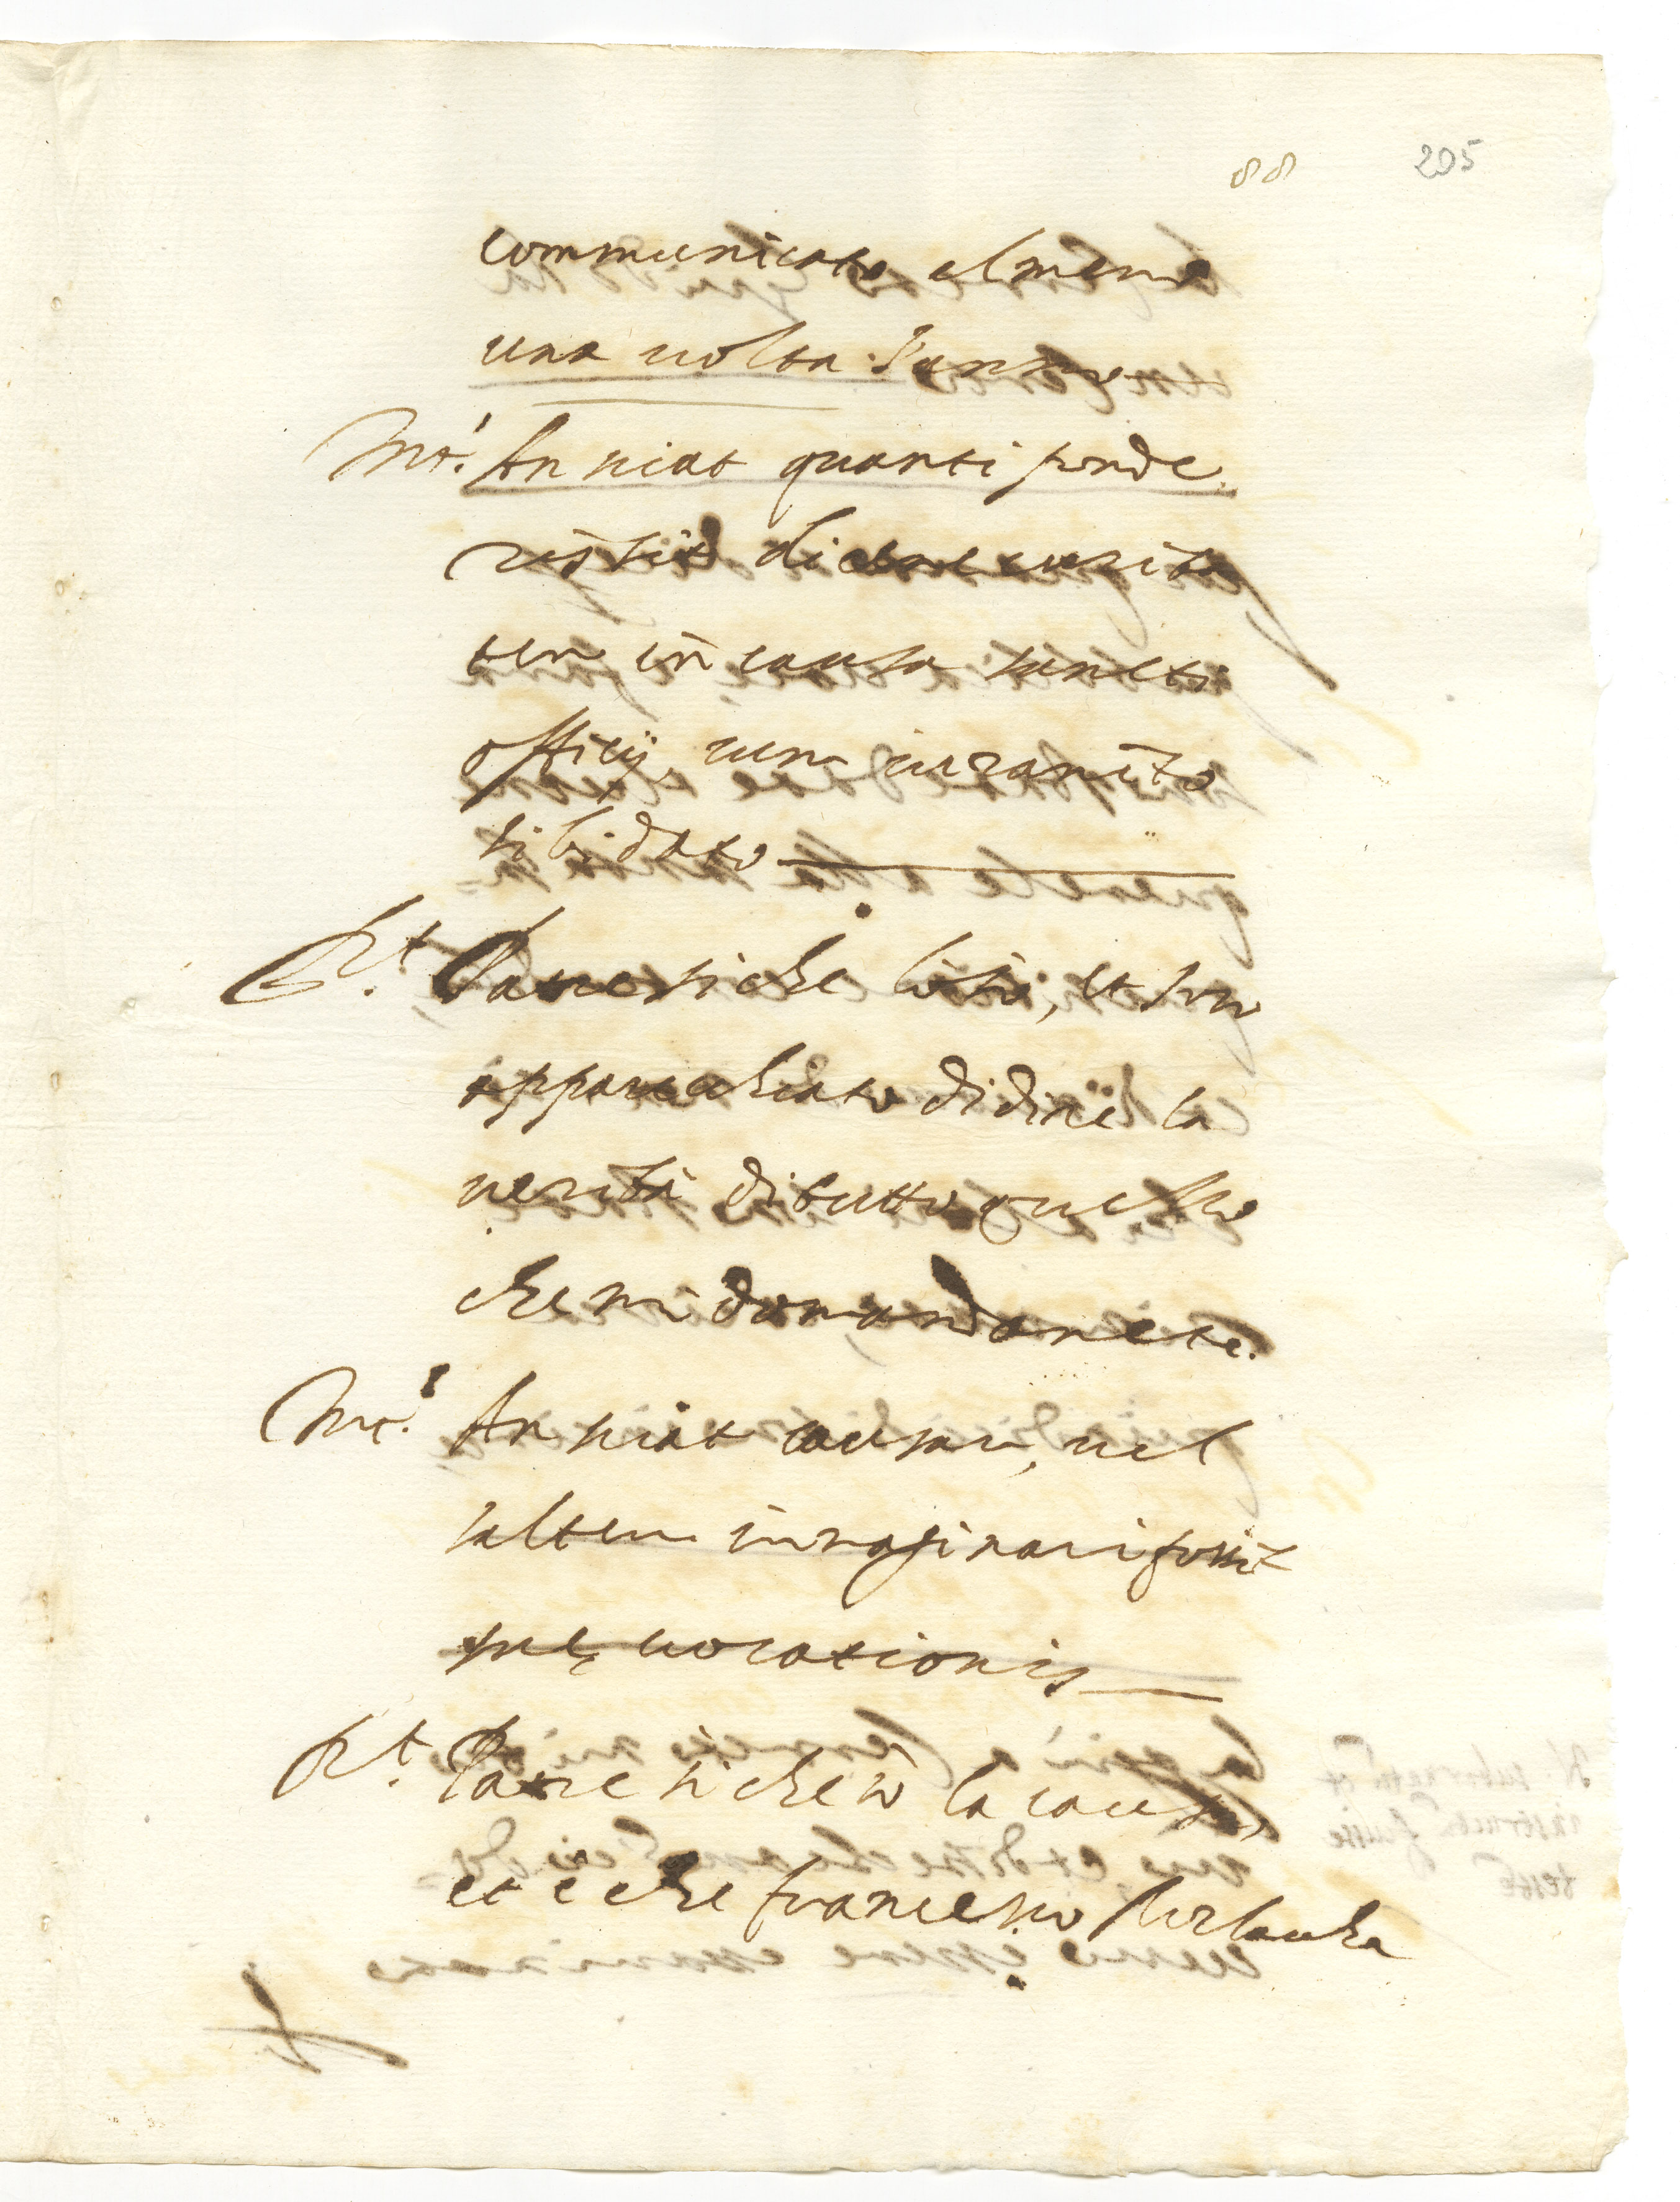 88 205
communicato almeno
una uolta l'anno
Int.^s An sciat quanti ponde
ris sit dicere uerita
tem in causa sancti
officij cum iuramẽto
sibi dato
R.^t Padre si che lo sò, et son
apparechiato di dire la
uerità di tutto quello
che mi domandarete.
Int.^s An sciat causam, uel
saltem imaginari possit
suę uocationis
R.^t Padre si che sò la causa,
et è che francesco